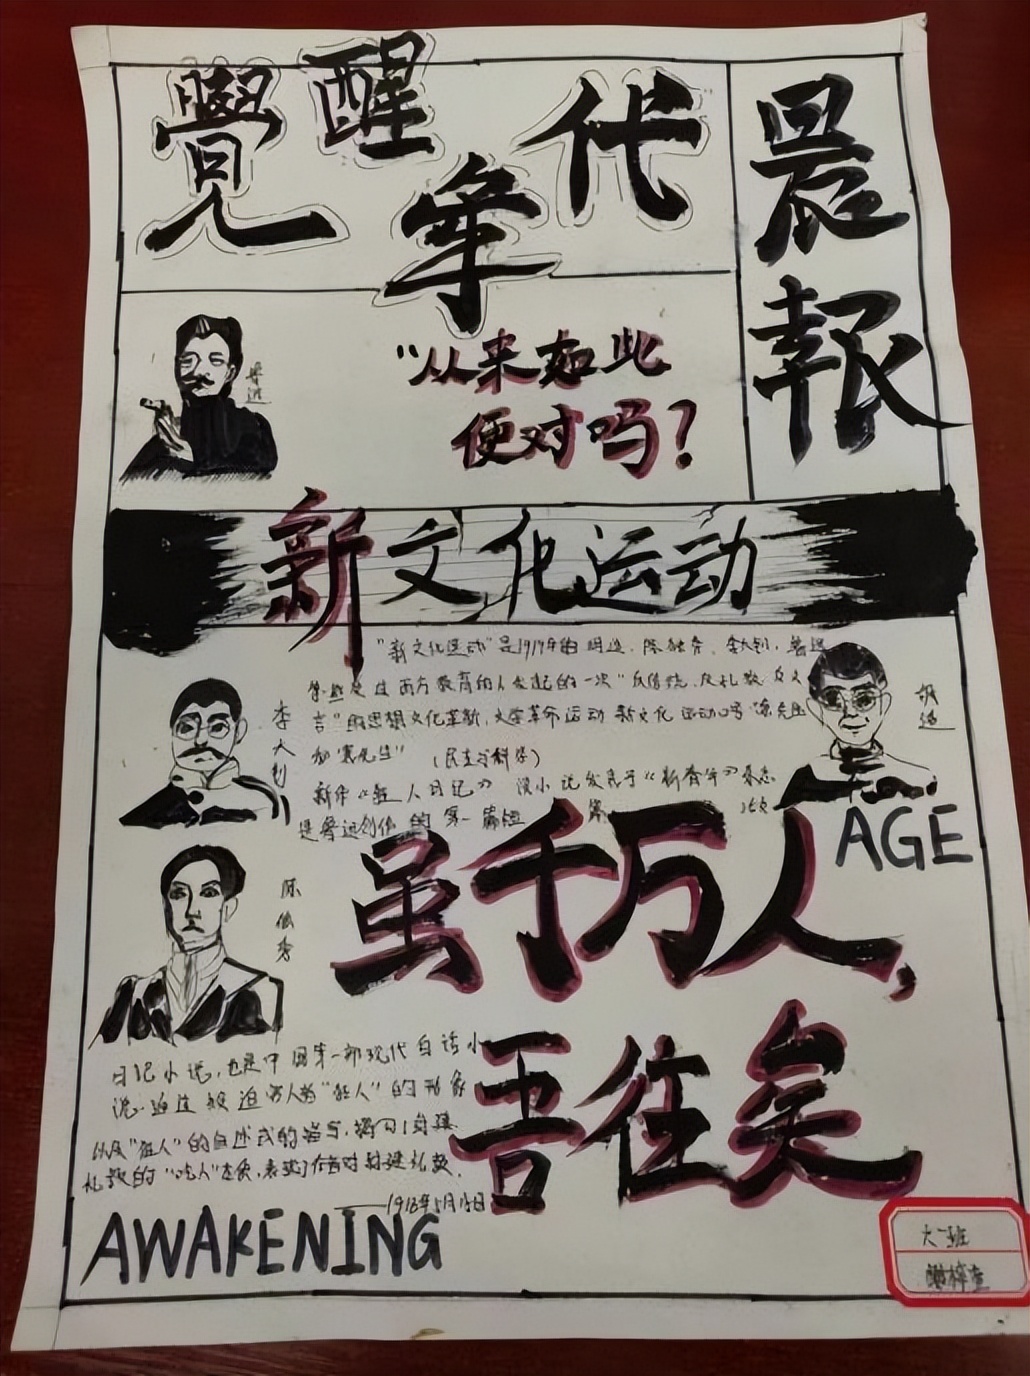 覺醒年代
晨報
魯迅
“从来如此
便对吗?
新文化运动
"新文化运动"是1919年的胡适、陈独秀、李大钊、鲁迅
等些受过西方教育的人发起的一次"反传统、反礼教、反文
言"的思想文化革新、文学革命运动 新文化运动口号"德先生
和"赛先生" (民主与科学)
新作《狂人日记》 该小说发表于《新青年》杂志
是鲁迅创作的第一篇短
李大钊
胡适
AGE
陈独秀
虽千万人,
吾往矣
日记小说,也是中国第一部现代白话小
说.通过被迫害人的"狂人"的形象
以及"狂人"的自述式的描写,揭句了封建
礼教的"吃人"本质,表现了作者对封建礼教.
——1918年5月15日
AWAKENING
大一班